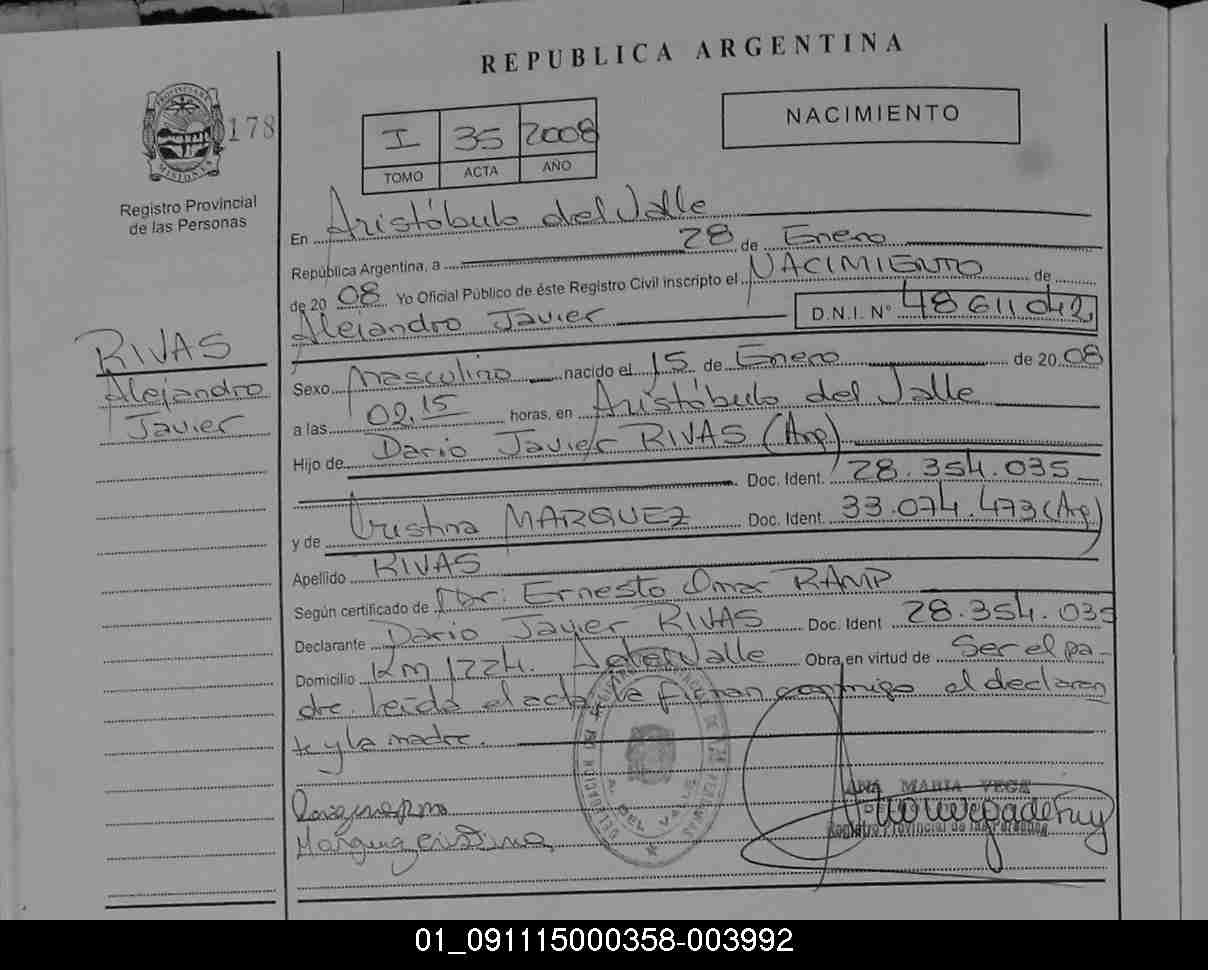 REPUBLICA ARGENTINA
PROVINCIA DE
MISIONES
178
Registro Provincial
de las Personas
I 35 2008
TOMO ACTA AÑO
NACIMIENTO
En Aristóbulo del Valle
República Argentina, a 28 de Enero
de 20 08 Yo Oficial Público de éste Registro Civil inscripto el NACIMIENTO de
Alejandro Javier D.N.I. Nº 48611042
RIVAS
Alejandro
Javier
Sexo Masculino nacido el 15 de Enero de 20 08
a las 02,15 horas, en Aristóbulo del Valle
Hijo de Dario Javier RIVAS (Arg)
Doc. Ident. 28.354.035
y de Cristina MARQUEZ Doc. Ident. 33.074.473 (Arg)
Apellido RIVAS
Según certificado de Dr. Ernesto Omar RAMP
Declarante Dario Javier RIVAS Doc. Ident 28.354.035
Domicilio KM 1224. Valle Obra en virtud de Ser el pa-
dre. Leída el acta, la firman conmigo el declaran
te y la madre.
Marquez cristina
ANA MARIA VEGA
Registro Provincial de las Personas
01_091115000358-003992